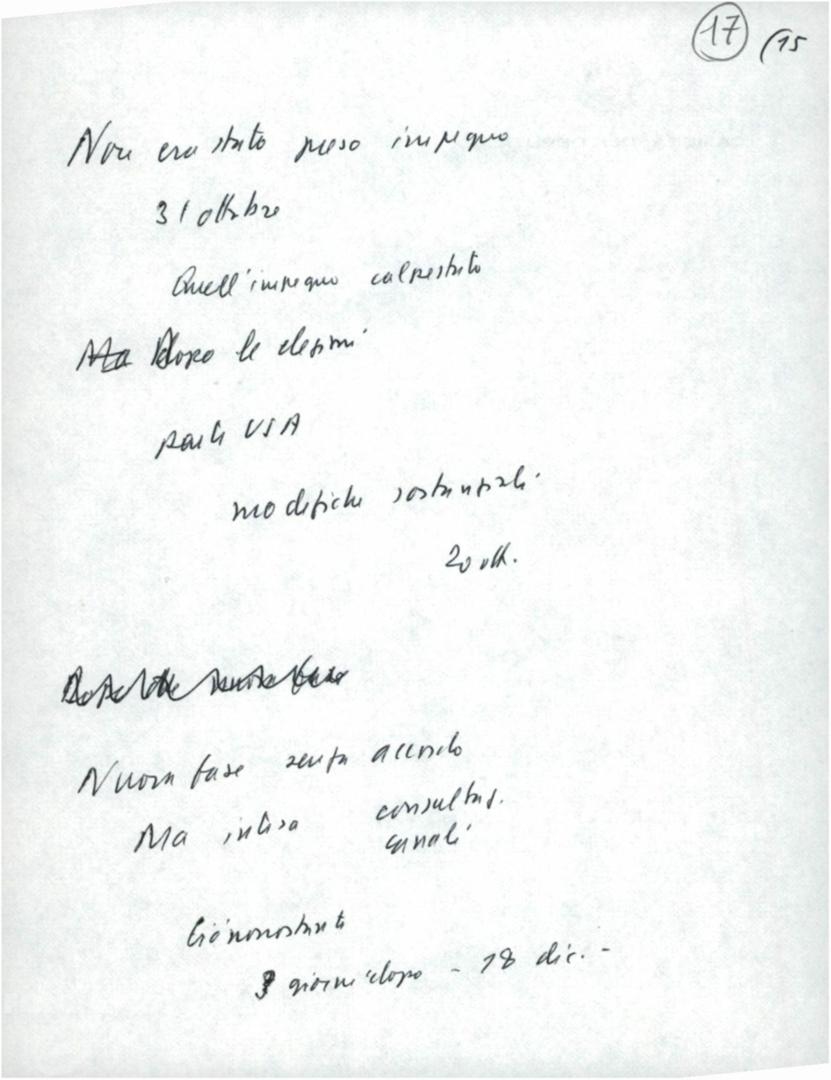 17 (15
Non era stato preso impegno
31 ottobre
Quell'impegno calpestato
Ma Dopo le elezioni
parte USA
modifiche sostanziali.
20 ott.
Nuova fase senza accordo
Ma intesa consultaz.
canali
Ciononostante
3 giorni dopo - 18 dic. -